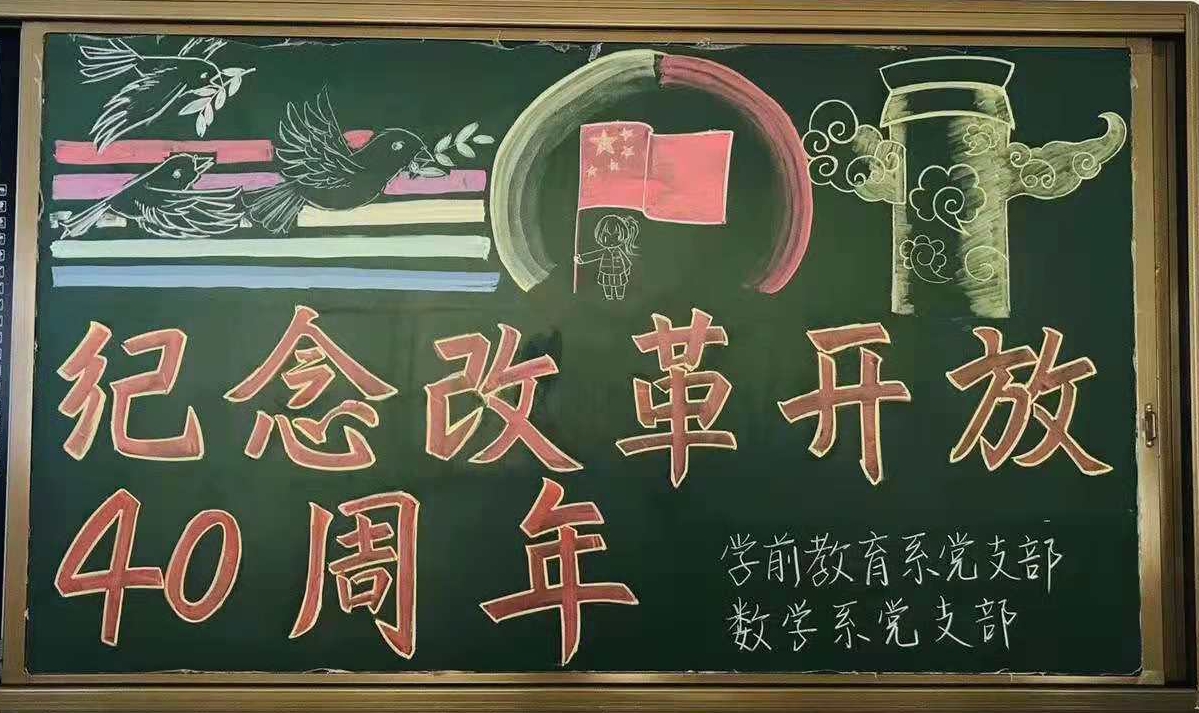 纪念改革开放
40周年
学前教育系党支部
数学系党支部